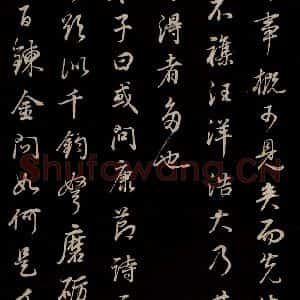 事概可見矣而先
不襍汪洋浩大乃
得者多也
子曰或問康節詩
頭似千鈞弩磨礪
百鍊金問如何是
Shufawang.CN